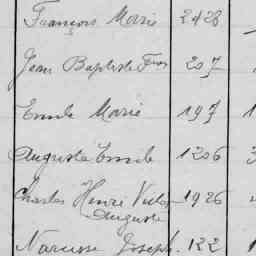 François Marie 2428
Jean Baptiste Fçois 207
Emile Marie 197
Auguste Emile 1206
Charles Henri Victor 1926
Auguste
Narcisse Joseph 122